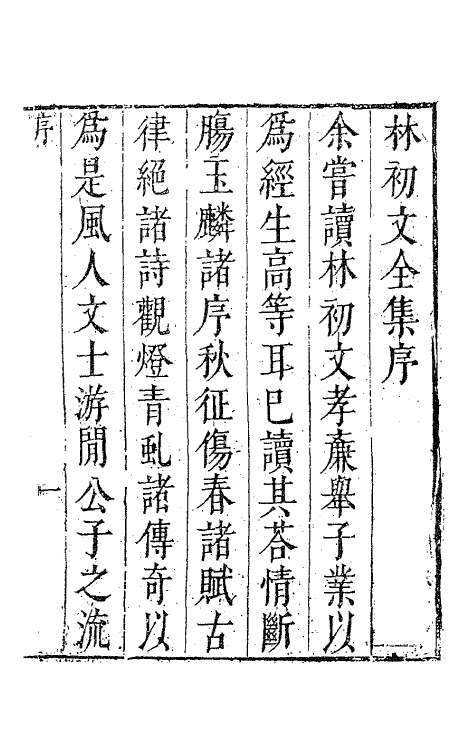 林初文全集序
余嘗讀林初文孝亷舉子業以
爲經生高等耳巳讀其荅情斷
腸玉麟諸序秋征傷春諸賦古
律絕諸詩觀燈青虬諸傳奇以
爲是風人文士游閒公子之流
序 一